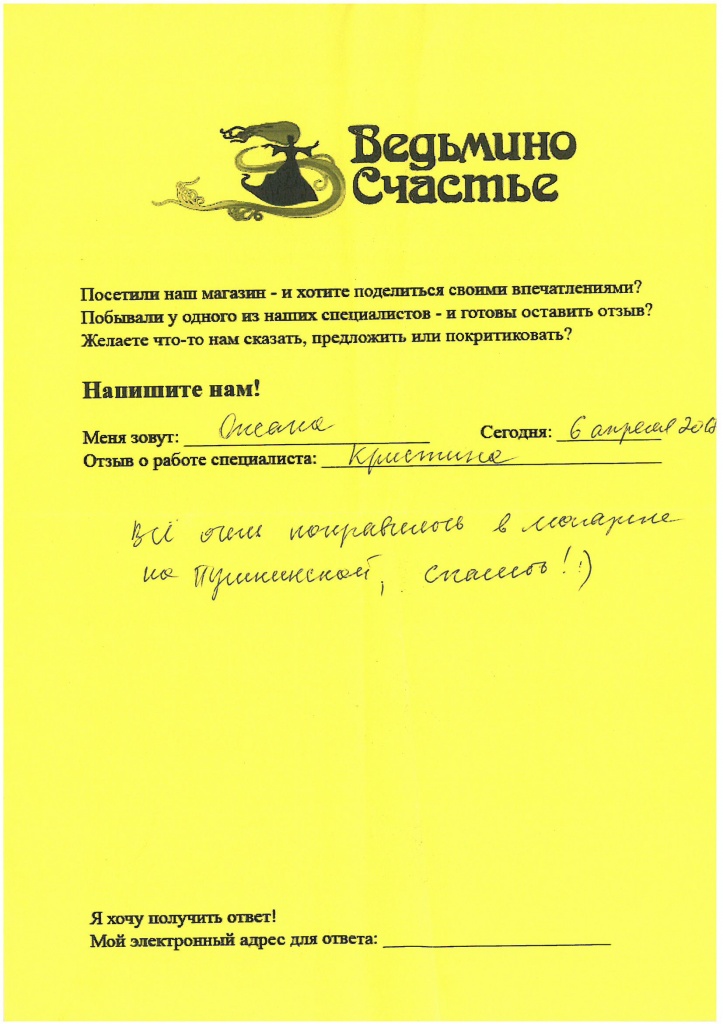 Ведьмино
Счастье
Посетили наш магазин - и хотите поделиться своими впечатлениями?
Побывали у одного из наших специалистов - и готовы оставить отзыв?
Желаете что-то нам сказать, предложить или покритиковать?
Напишите нам!
Меня зовут: Оксана Сегодня: 6 апреля
Отзыв о работе специалиста: Кристина
Всё очень понравилось в магазине
на Пушкинской, спасибо! :)
Я хочу получить ответ!
Мой электронный адрес для ответа: